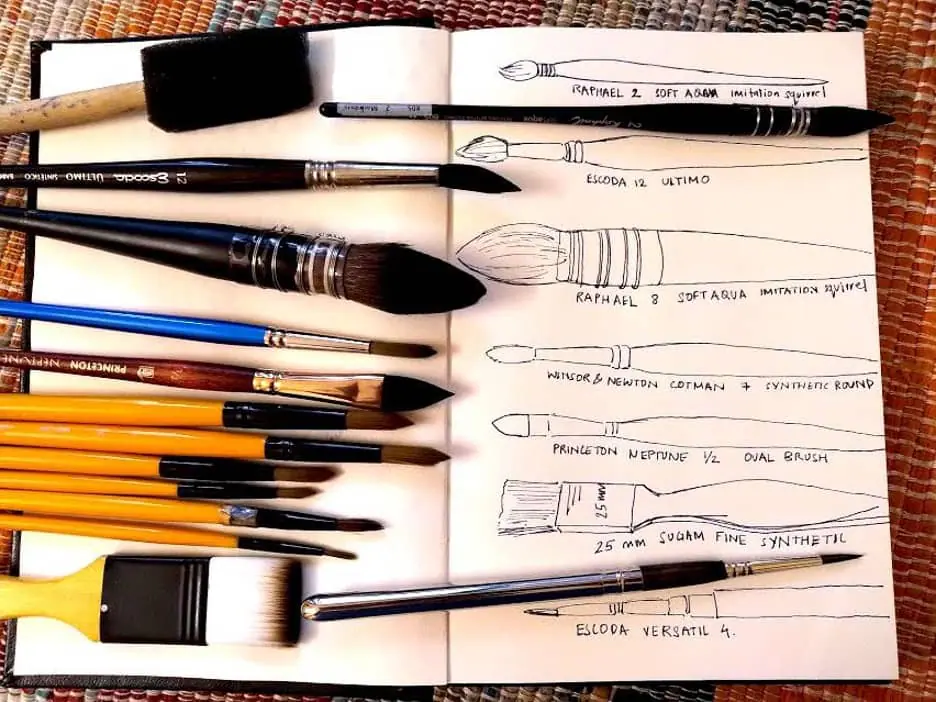 RAPHAEL 2 SOFT AQUA imitation squirrel
2 Raphaël SOFTAQUA
12 Escoda ULTIMO SINTÉTICO
ESCODA 12 ULTIMO
RAPHAEL 8 SOFT AQUA IMITATION squirrel
WINSOR & NEWTON COTMAN 7 SYNTHETIC ROUND
PRINCETON NEPTUNE
PRINCETON NEPTUNE 1/2 OVAL BRUSH
25 mm
25 mm SUGAM FINE SYNTHETIC
ESCODA VERSATIL 4.